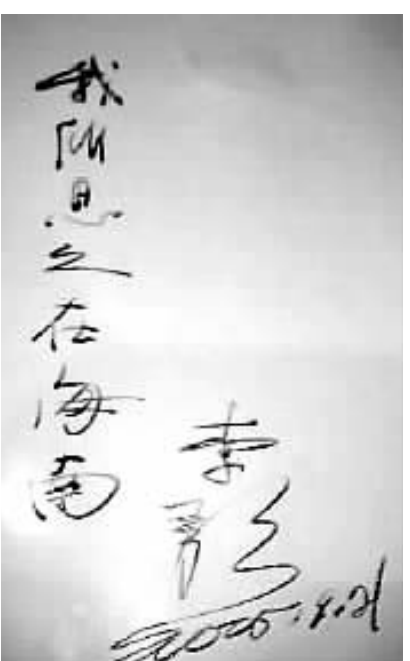 我所思之在海南
李勇
2005.8.21